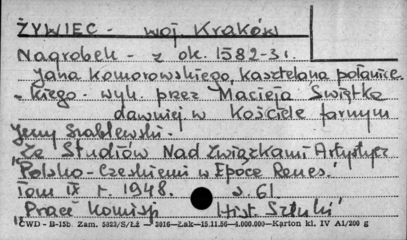 ŻYWIEC - woj. Kraków
Nagrobek - z ok. 1582-3.
Jana Komorowskiego, kasztelana połanice-
kiego - wyk. przez Macieja Świątka
dawniej w Kościele farnym
Jerzy Szablewski -
Ze Studiów Nad Związkami Artystycz
Polsko-Czeskiemi w Epoce Renes.
Tom IX r. 1948. s. 61
Prace Komisji Hist. Sztuki
CWD - B-15b. Zam. 5823/S/Łż - 3016-Łak-15.11.56-4.000.000-Karton kl. IV A1/200 g